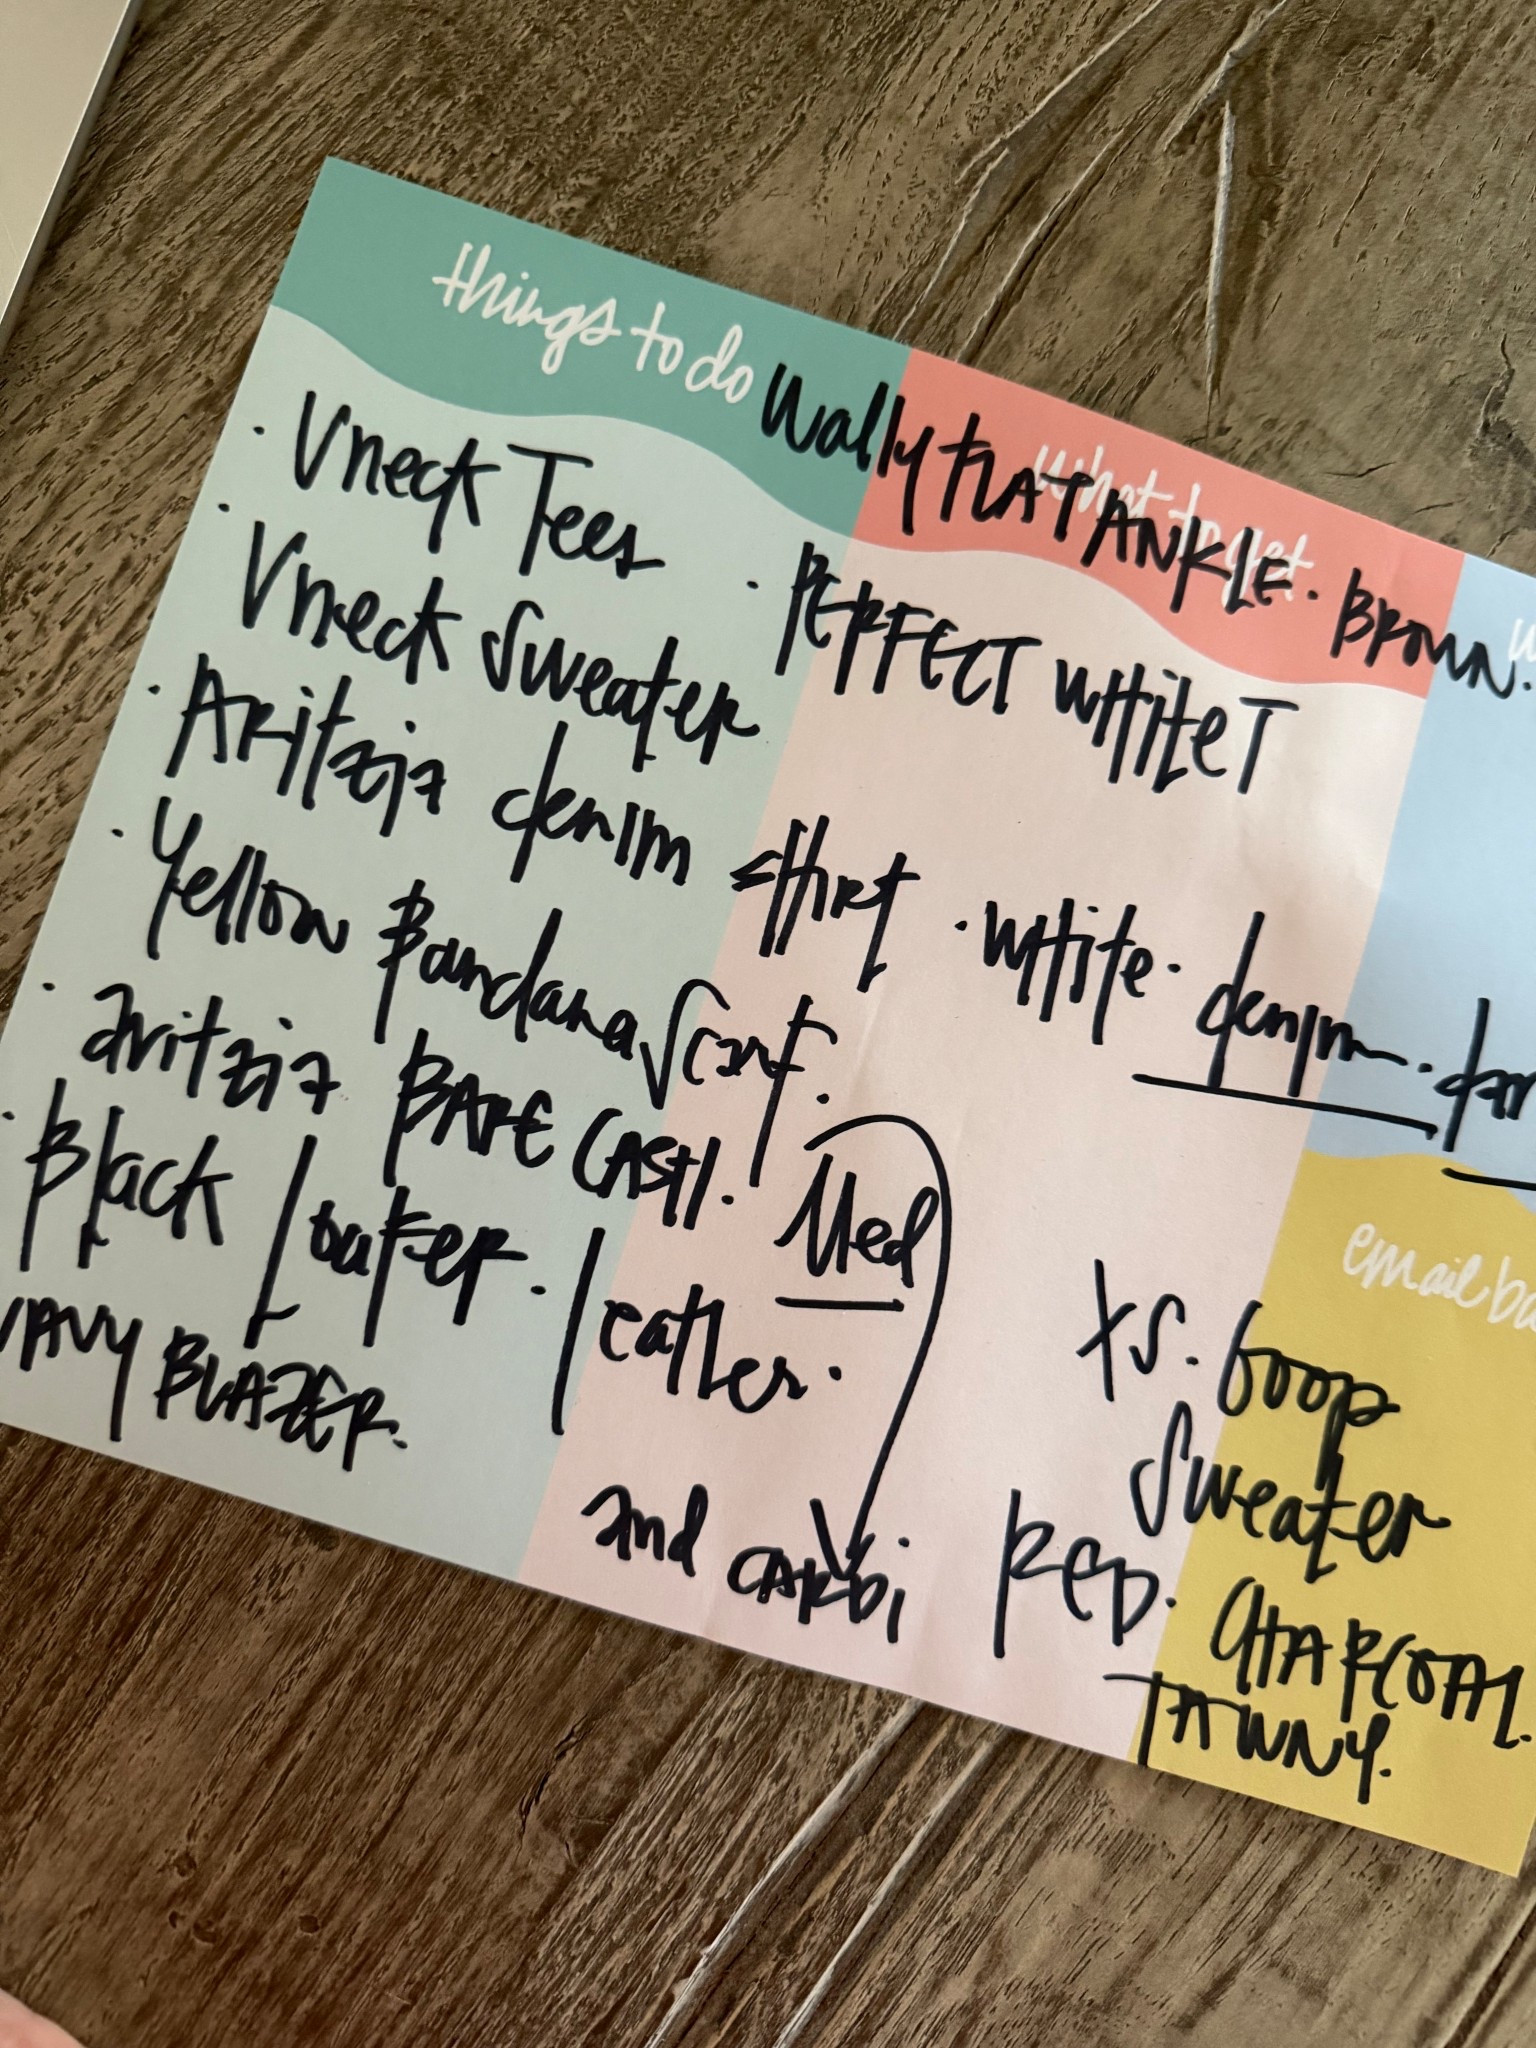 things to do
what to get
Wally FLAT ANKLE. BROWN.
· Vneck Tees
· PERFECT WHITE T
· Vneck Sweater
· ARitzia denim SHIRt · WHite. denim.
· Yellow Bandana Scarf.
· aritzia BARE CASH. Med
· Black loafer. leather.
NAVY BLAZER.
and CARDi
email
XS. Goop
Sweater
RED. CHARCOAL.
TAWNY.